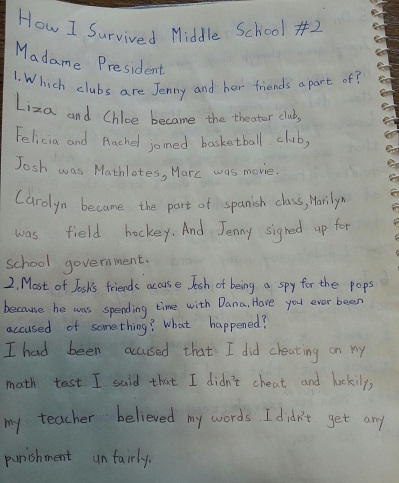 How I Survived Middle School #2
Madame President
1. Which clubs are Jenny and her friends a part of?
Liza and Chloe became the theater club,
Felicia and Rachel joined basketball club,
Josh was Mathlotes, Marc was movie.
Carolyn became the part of spanish class, Marilyn
was field hockey. And Jenny signed up for
school government.
2. Most of Josh's friends accuse Josh of being a spy for the pops
because he was spending time with Dana. Have you ever been
accused of something? What happened?
I had been accused that I did cheating on my
math test I said that I didn't cheat and luckily,
my teacher believed my words I didn't get any
punishment unfairly.